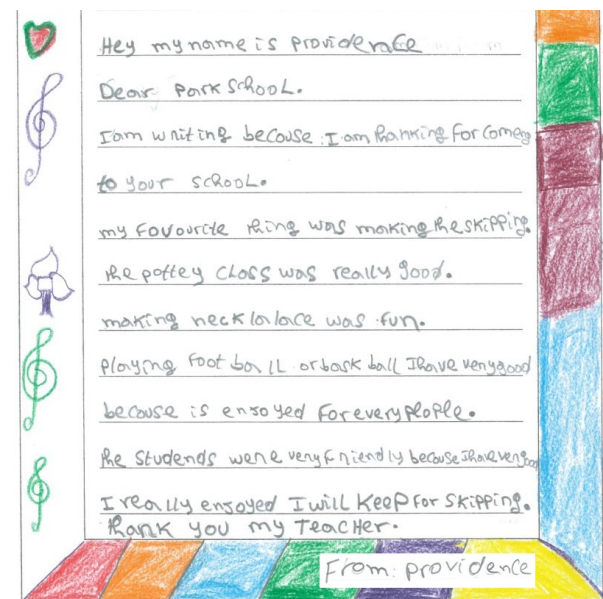 Hey my name is providence
Dear park school.
I am writing because I am thanking for comeg
to your school.
my favourite thing was making the skipping.
the pottey class was really good.
making necklalace was fun.
playing foot ball or bask ball I have very good
because is ensoyed for every plople.
the studends were very friendly because I have very good
I really ensoyed I will keep for skipping.
thank you my TeacHer.
From: providence